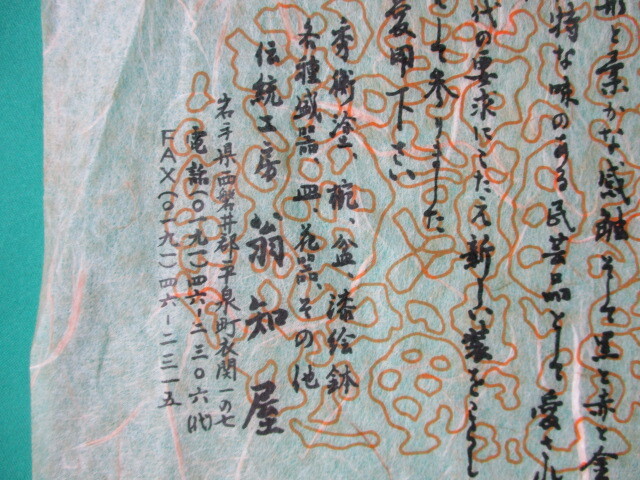 形と豊かな感離そして黒と赤と金
特な味のある民芸品として愛され
代の要求にこたえ新しい装をこらし
として参りました
愛用下さい
秀衡塗、椀、盆、漆絵鉢
各種盛器、皿、花器、その他
伝統工房 翁知屋
岩手県西磐井郡平泉町衣関一の七
電話(〇一九一)四六-二三〇六(代)
FAX(〇一九一)四六-二三一五